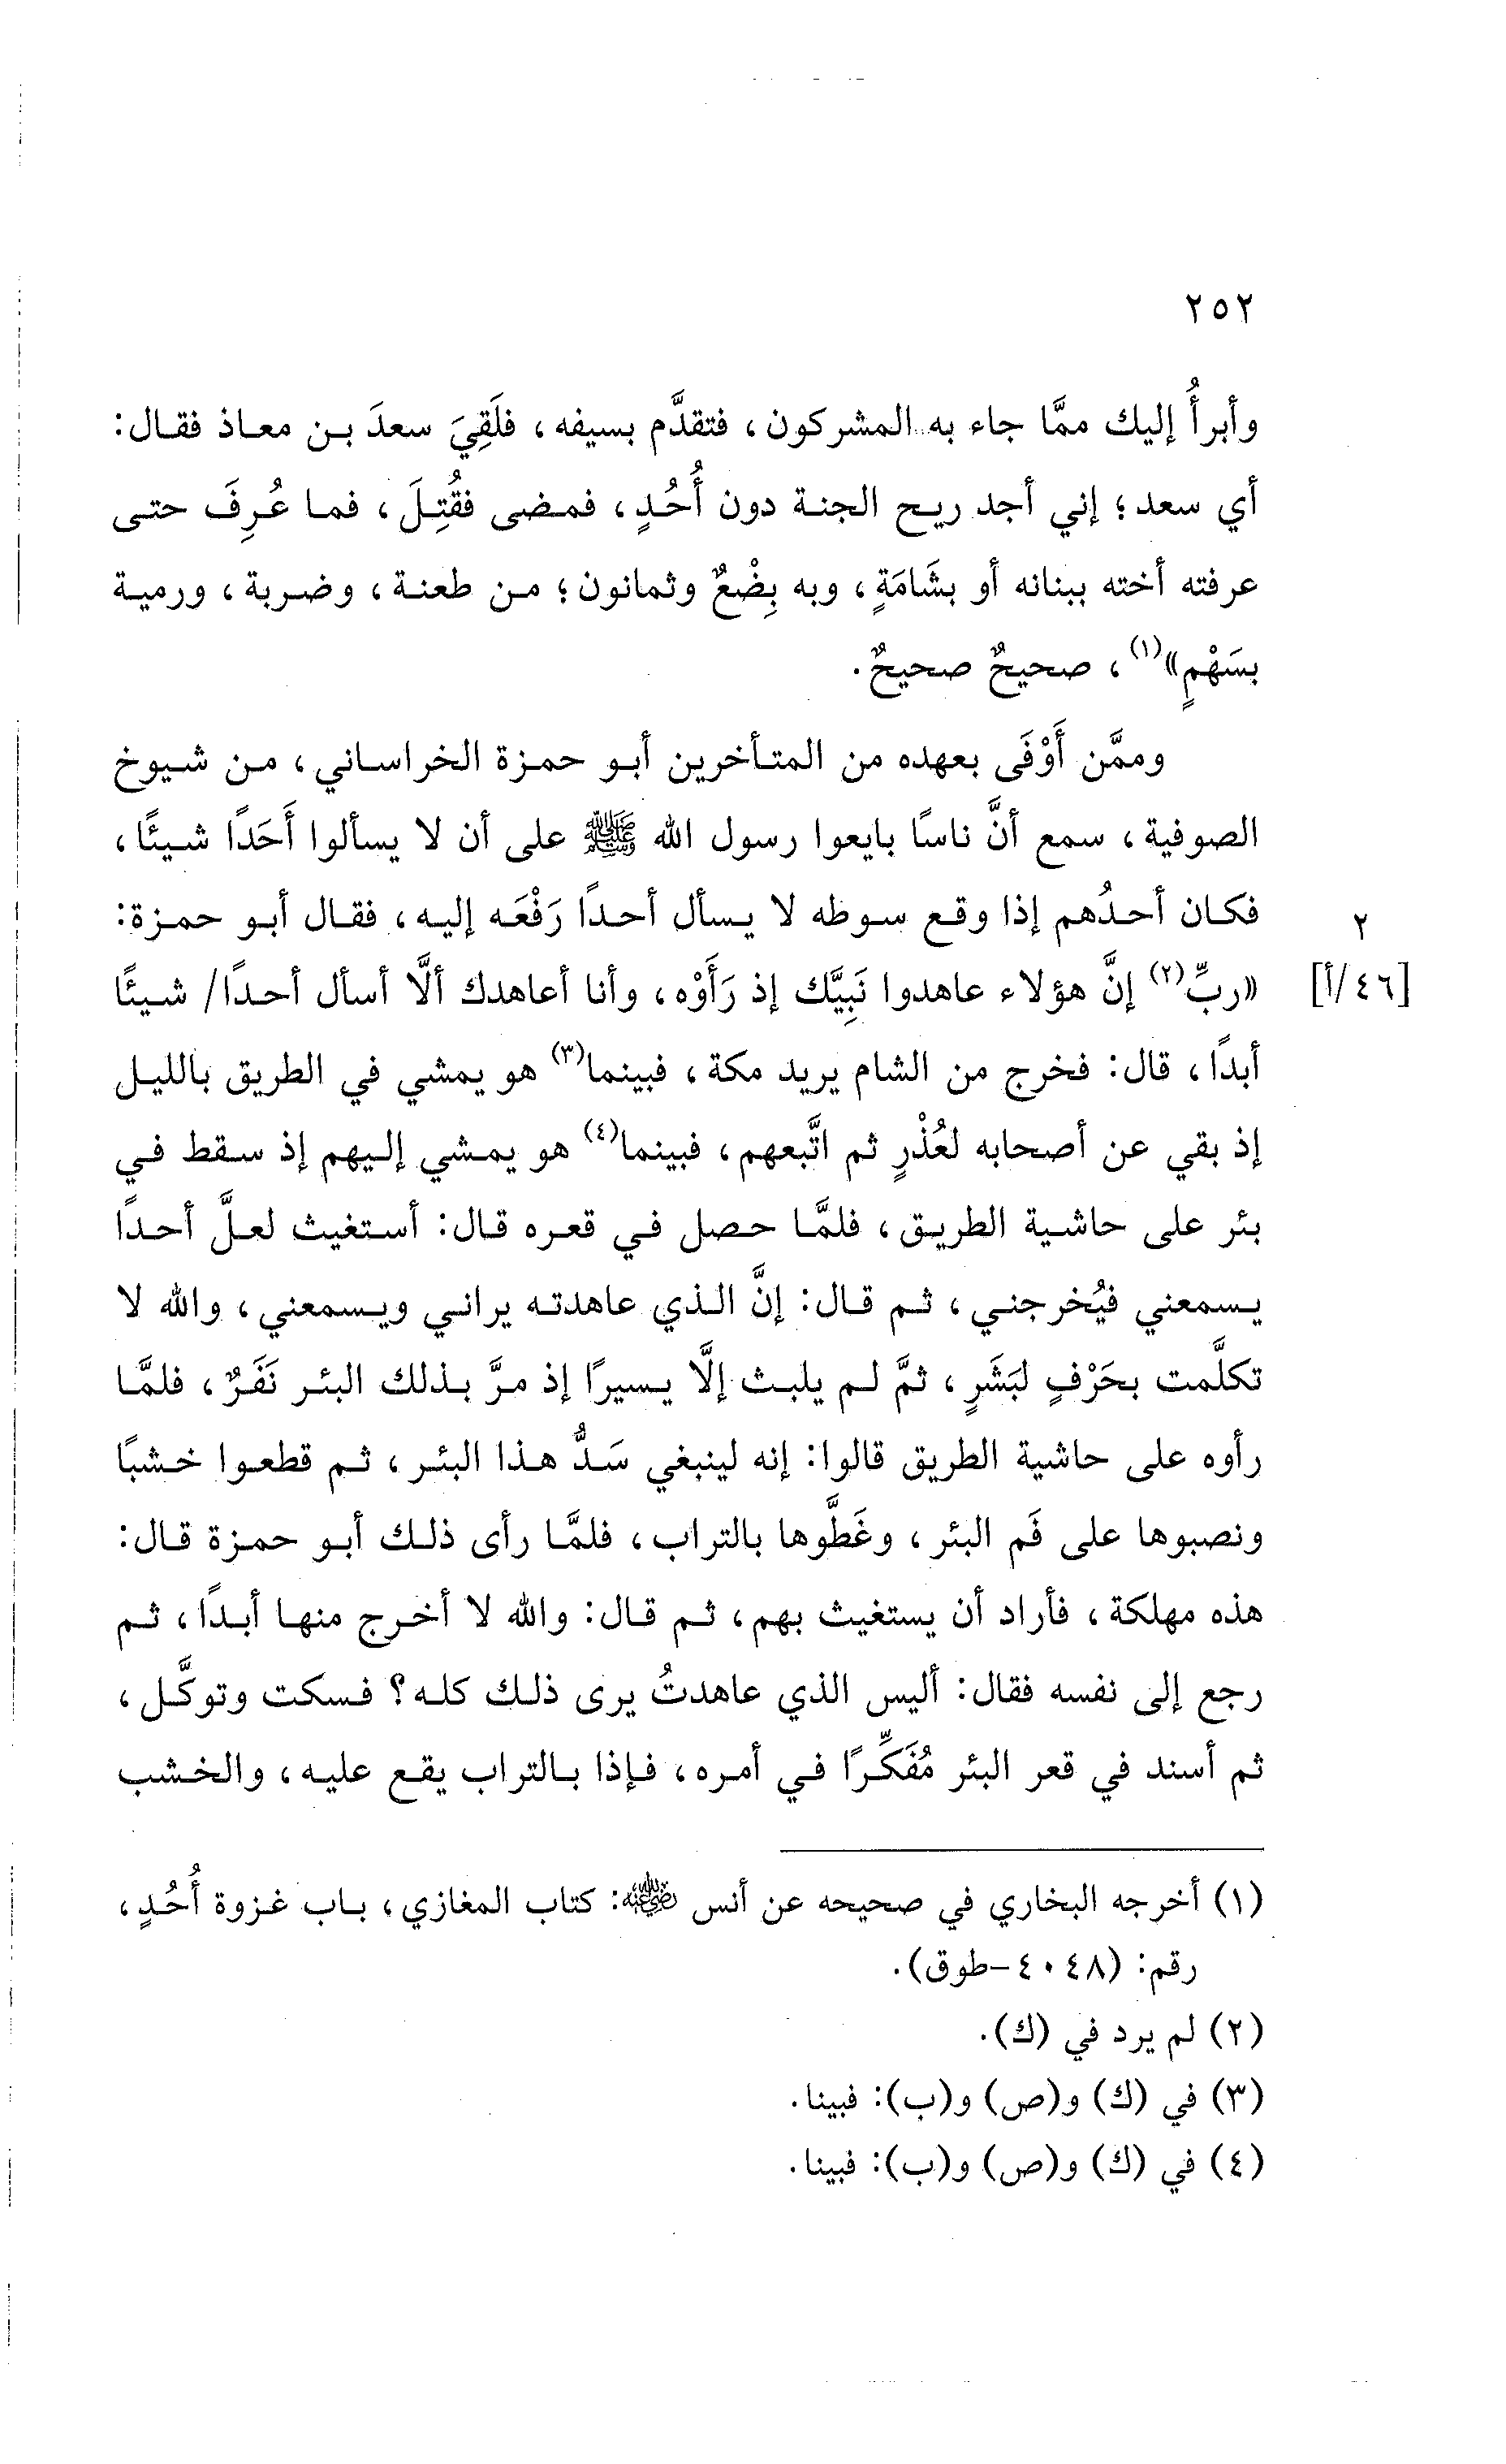 ٢٥٢
وأبرأُ إليك ممَّا جاء به المشركون، فتقدَّم بسيفه، فلَقِيَ سعدَ بن معاذ فقال:
أي سعد؛ إني أجد ريح الجنة دون أُحُدٍ، فمضى فقُتِلَ، فما عُرِفَ حتى
عرفته أخته ببنانه أو بشَامَةٍ، وبه بِضْعٌ وثمانون؛ من طعنة، وضربة، ورمية
بسَهْمٍ»(١)، صحيحٌ صحيحٌ.
وممَّن أَوْفَى بعهده من المتأخرين أبو حمزة الخراساني، من شيوخ
الصوفية، سمع أنَّ ناسًا بايعوا رسول الله ﷺ على أن لا يسألوا أَحَدًا شيئًا،
فكان أحدُهم إذا وقع سوطه لا يسأل أحدًا رَفْعَه إليه، فقال أبو حمزة:
٢
«ربِّ(٢) إنَّ هؤلاء عاهدوا نَبِيَّك إذ رَأَوْه، وأنا أعاهدك ألَّا أسأل أحدًا/ شيئًا
[٤٦/أ]
أبدًا، قال: فخرج من الشام يريد مكة، فبينما(٣) هو يمشي في الطريق بالليل
إذ بقي عن أصحابه لعُذْرٍ ثم اتَّبعهم، فبينما(٤) هو يمشي إليهم إذ سقط في
بئر على حاشية الطريق، فلمَّا حصل في قعره قال: أستغيث لعلَّ أحدًا
يسمعني فيُخرجني، ثم قال: إنَّ الذي عاهدته يراني ويسمعني، والله لا
تكلَّمت بحَرْفٍ لبَشَرٍ، ثمَّ لم يلبث إلَّا يسيرًا إذ مرَّ بذلك البئر نَفَرٌ، فلمَّا
رأوه على حاشية الطريق قالوا: إنه لينبغي سَدُّ هذا البئر، ثم قطعوا خشبًا
ونصبوها على فَم البئر، وغَطَّوها بالتراب، فلمَّا رأى ذلك أبو حمزة قال:
هذه مهلكة، فأراد أن يستغيث بهم، ثم قال: والله لا أخرج منها أبدًا، ثم
رجع إلى نفسه فقال: أليس الذي عاهدتُ يرى ذلك كله؟ فسكت وتوكَّل،
ثم أسند في قعر البئر مُفَكِّرًا في أمره، فإذا بالتراب يقع عليه، والخشب
(١) أخرجه البخاري في صحيحه عن أنس رضي الله عنه: كتاب المغازي، باب غزوة أُحُدٍ،
رقم: (٤٠٤٨-طوق).
(٢) لم يرد في (ك).
(٣) في (ك) و(ص) و(ب): فبينا.
(٤) في (ك) و(ص) و(ب): فبينا.